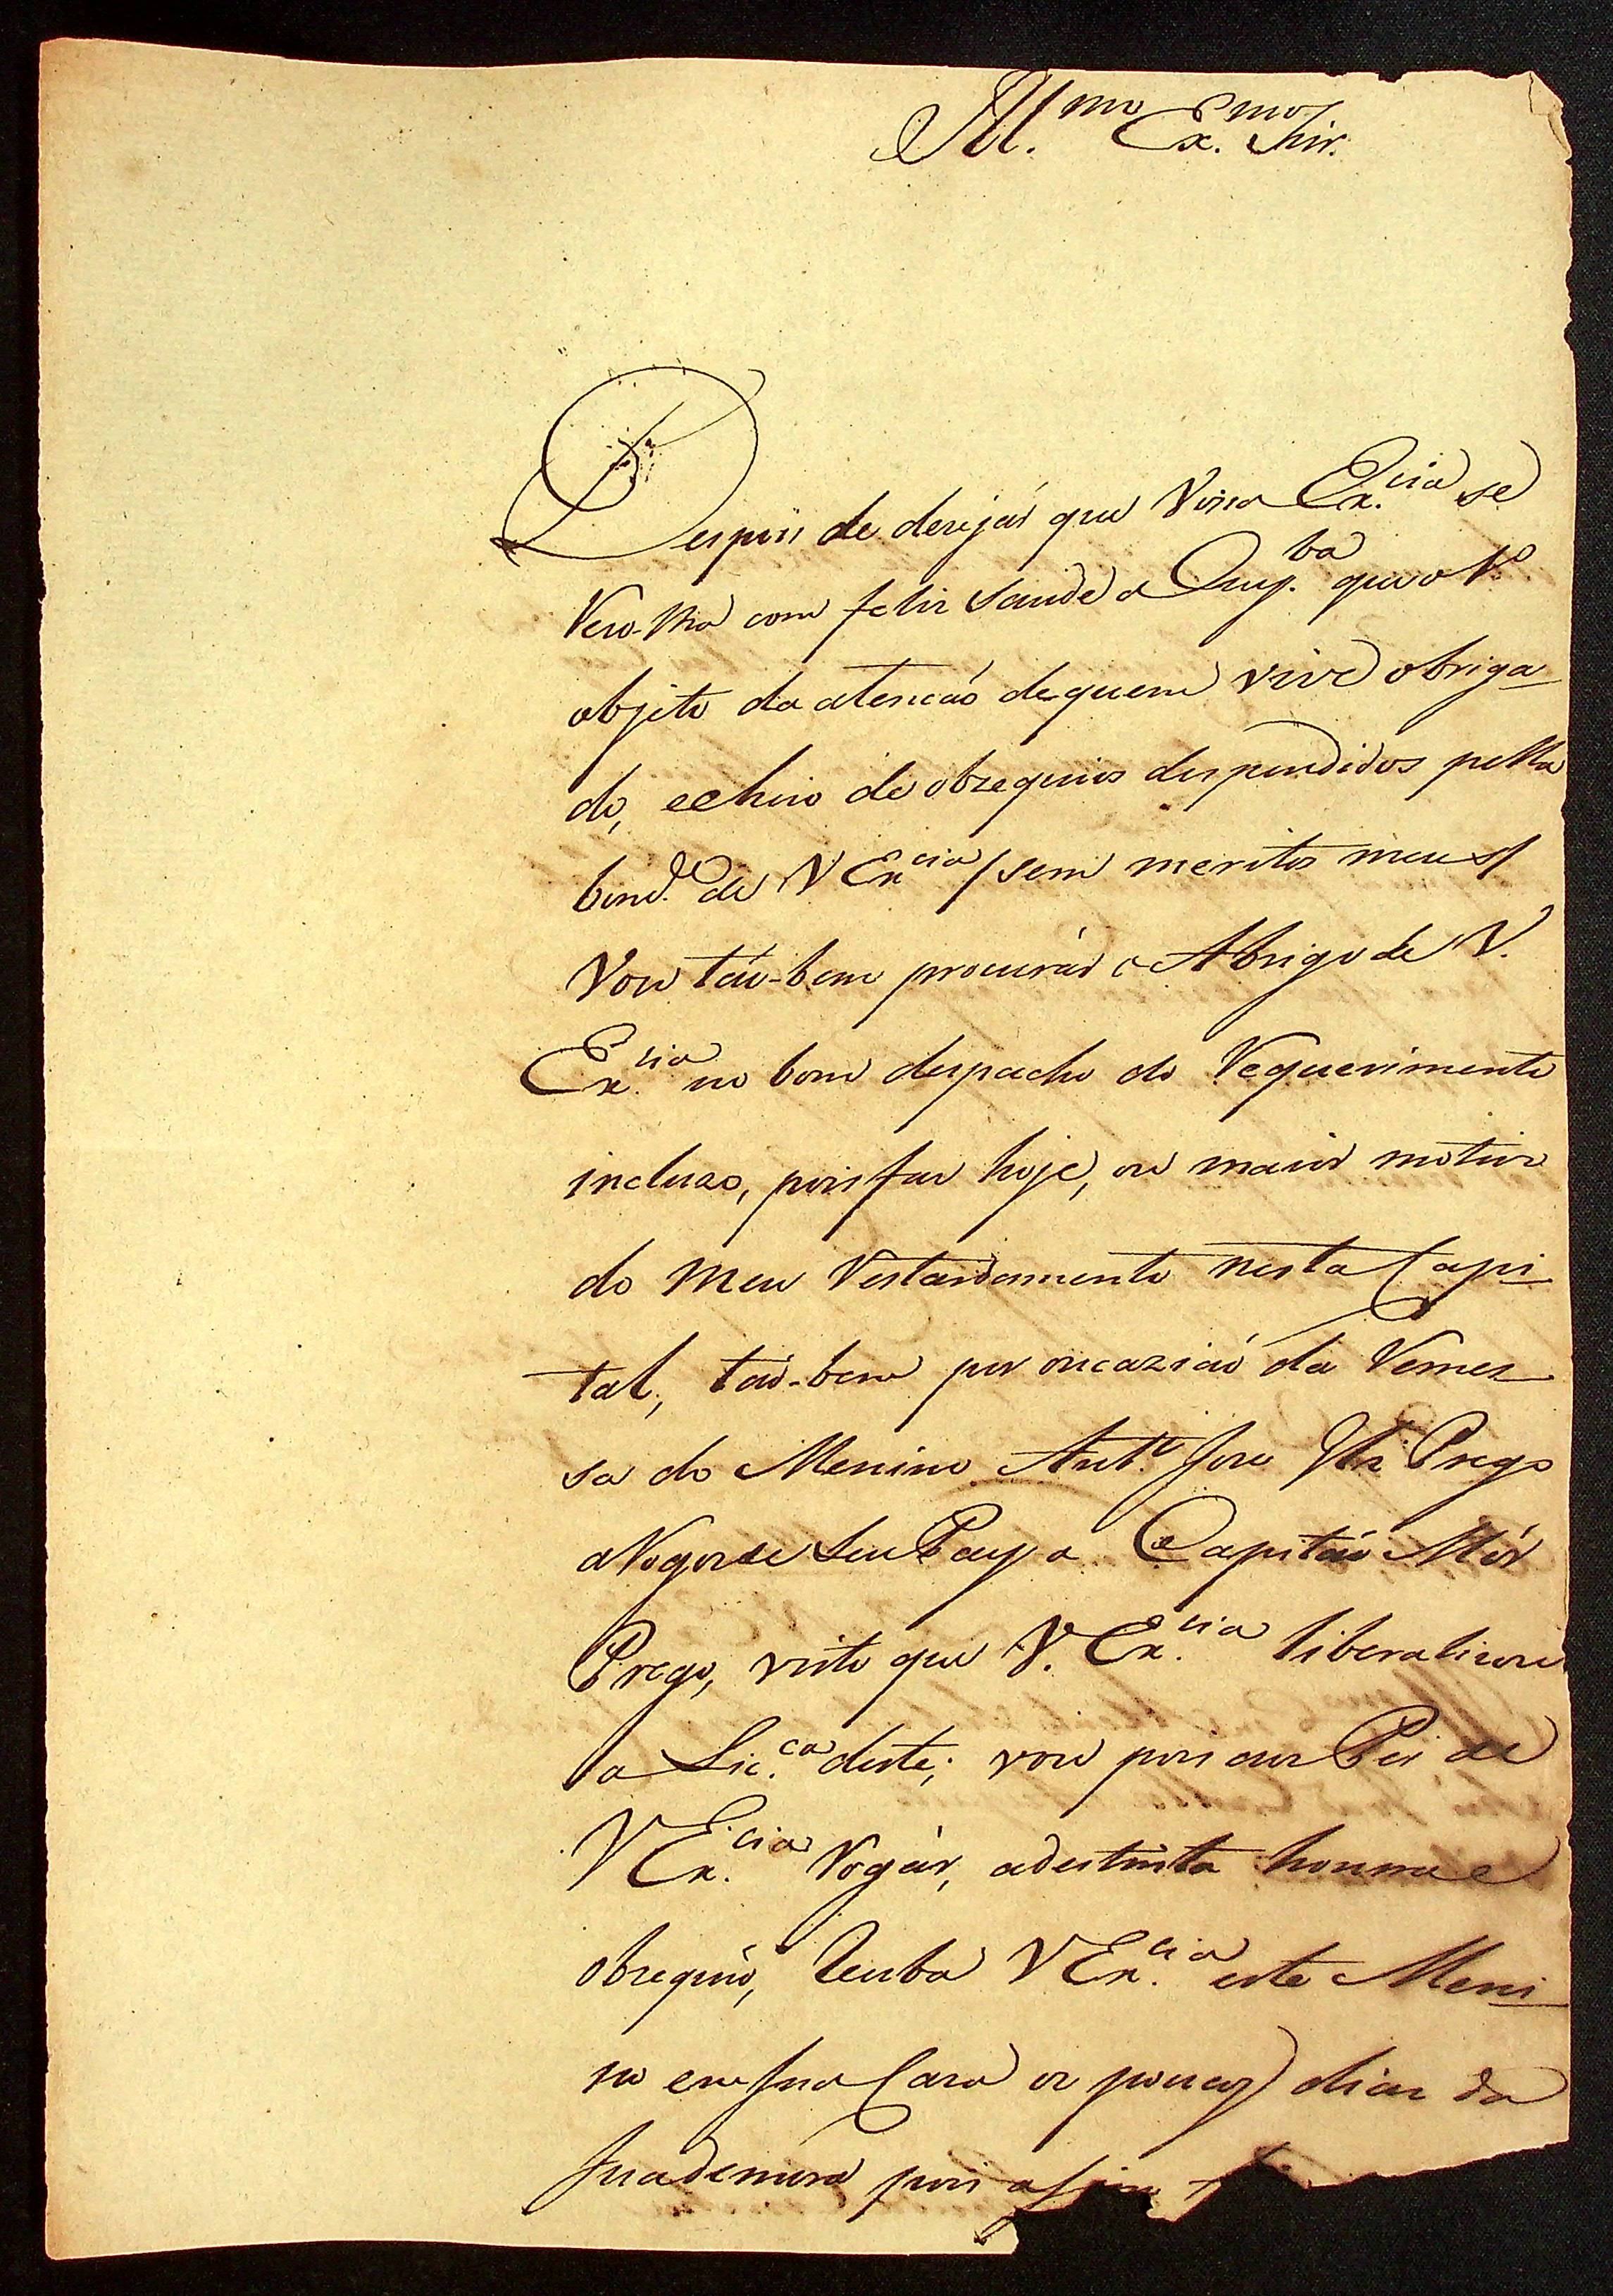 Ill.mo Ex.mo Snr.
Despois de dezejar que Vossa Ex.cia se
com feliz saude a que o 1º
objeto da atencáo de quem vive obriga-
do, e cheio de obzequios despendidos pella
bond.e de V Ex.cia /sem meritos meus/
Vou táo-bem procurár o Abrigo de V.
Ex.cia no bom despacho do Requerimento
incluzo, pois faz hoje, o maior motivo
do meu Retardamento nesta Capi-
tal, táo-bem por occaziáo da Remes-
sa do Menino Ant.o Joze Prego
a Rogos de seu Pay o Capitáo Mór
Prego, visto que V. Ex.cia
a Lic.ca deste; vou pois aos Pes de
V Ex.cia Rogár, a destinta honrra e
obzequio, tenha V Ex.cia este Meni-
no em sua Caza os poucos dias da
sua demora pois assim